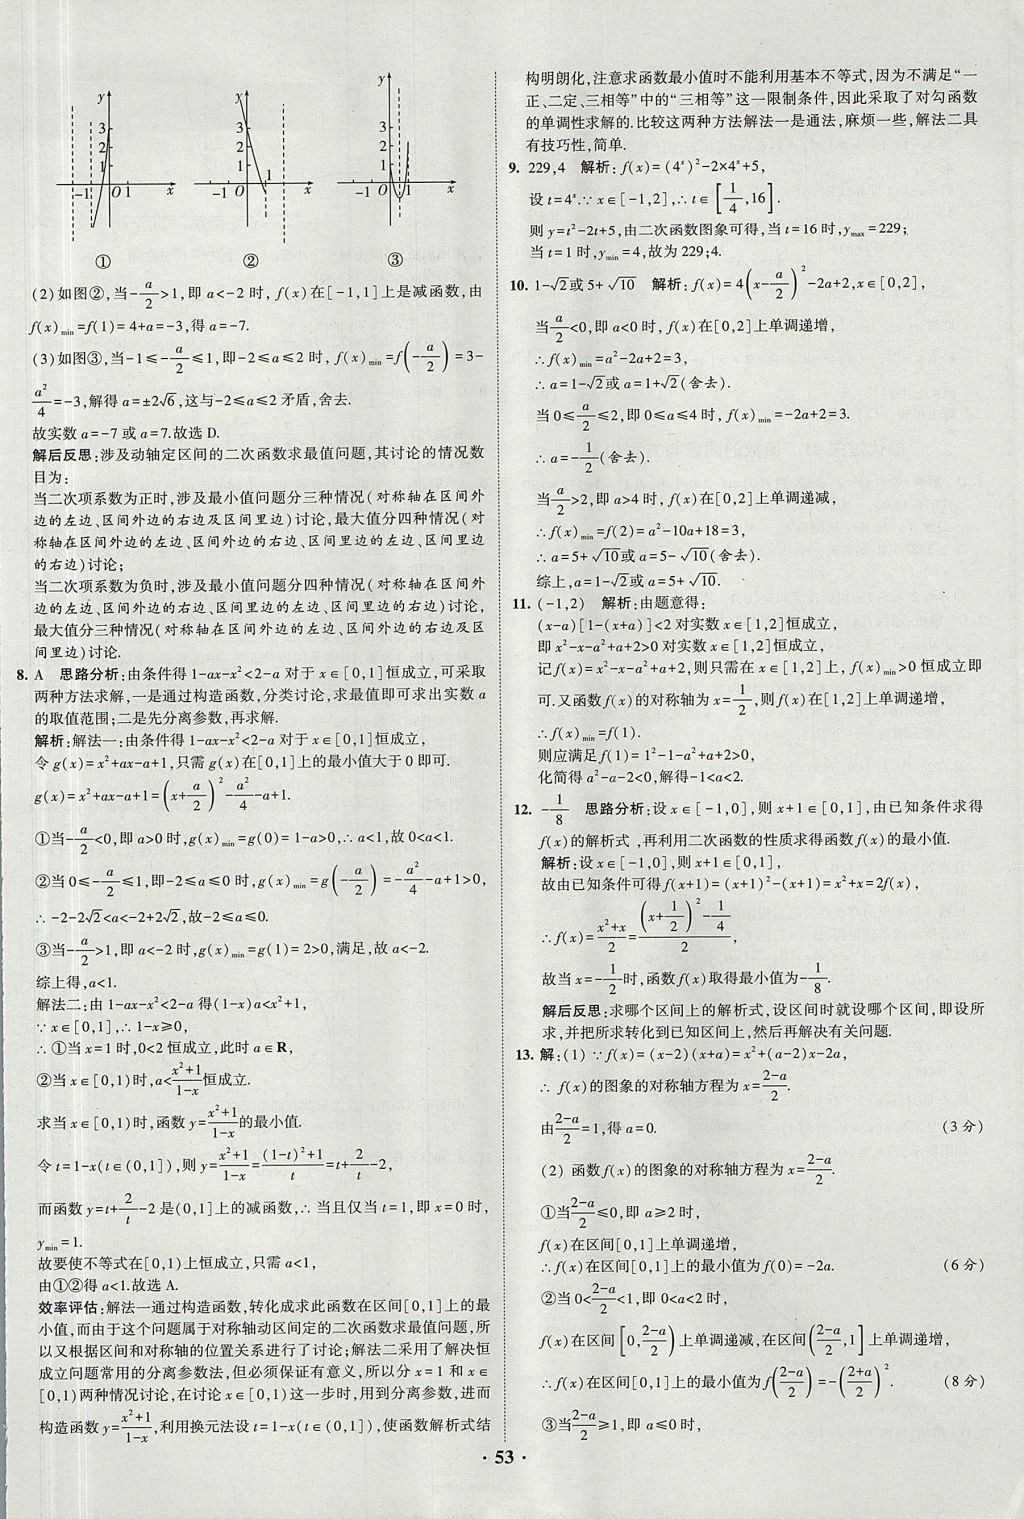 y
3
2
1
-1 O 1 x
①
y
3
2
1
O 1 x
②
y
3
2
1
-1 O 1 x
③
(2)如图②,当-a/2>1,即a<-2时,f(x)在[-1,1]上是减函数,由
f(x)min=f(1)=4+a=-3,得a=-7.
(3)如图③,当-1≤-a/2≤1,即-2≤a≤2时,f(x)min=f(-a/2)=3-
a²/4=-3,解得a=±2√6,这与-2≤a≤2矛盾,舍去.
故实数a=-7或a=7.故选D.
解后反思:涉及动轴定区间的二次函数求最值问题,其讨论的情况数
目为:
当二次项系数为正时,涉及最小值问题分三种情况(对称轴在区间外
边的左边、区间外边的右边及区间里边)讨论,最大值分四种情况(对
称轴在区间外边的左边、区间外边的右边、区间里边的左边、区间里边
的右边)讨论;
当二次项系数为负时,涉及最小值问题分四种情况(对称轴在区间外
边的左边、区间外边的右边、区间里边的左边、区间里边的右边)讨论,
最大值分三种情况(对称轴在区间外边的左边、区间外边的右边及区
间里边)讨论.
8. A 思路分析:由条件得1-ax-x²<2-a对于x∈[0,1]恒成立,可采取
两种方法求解,一是通过构造函数,分类讨论,求最值即可求出实数a
的取值范围;二是先分离参数,再求解.
解析:解法一:由条件得1-ax-x²<2-a对于x∈[0,1]恒成立,
令g(x)=x²+ax-a+1,只需g(x)在[0,1]上的最小值大于0即可.
g(x)=x²+ax-a+1=(x+a/2)²-a²/4-a+1.
①当-a/2<0,即a>0时,g(x)min=g(0)=1-a>0,∴a<1,故0<a<1.
②当0≤-a/2≤1,即-2≤a≤0时,g(x)min=g(-a/2)=-a²/4-a+1>0,
∴-2-2√2<a<-2+2√2,故-2≤a≤0.
③当-a/2>1,即a<-2时,g(x)min=g(1)=2>0,满足,故a<-2.
综上得,a<1.
解法二:由1-ax-x²<2-a得(1-x)a<x²+1,
∵x∈[0,1],∴1-x≥0,
∴①当x=1时,0<2恒成立,此时a∈R,
②当x∈[0,1)时,a<(x²+1)/(1-x)恒成立.
求当x∈[0,1)时,函数y=(x²+1)/(1-x)的最小值.
令t=1-x(t∈(0,1]),则y=(x²+1)/(1-x)=((1-t)²+1)/t=t+2/t-2,
而函数y=t+2/t-2是(0,1]上的减函数,∴当且仅当t=1,即x=0时,
ymin=1.
故要使不等式在[0,1)上恒成立,只需a<1,
由①②得a<1.故选A.
效率评估:解法一通过构造函数,转化成求此函数在区间[0,1]上的最
小值,而由于这个问题属于对称轴动区间定的二次函数求最值问题,所
以又根据区间和对称轴的位置关系进行了讨论;解法二采用了解决恒
成立问题常用的分离参数法,但必须保证有意义,所以分x=1和x∈
[0,1)两种情况讨论,在讨论x∈[0,1)这一步时,用到分离参数,进而
构造函数y=(x²+1)/(1-x),利用换元法设t=1-x(t∈(0,1]),使函数解析式结
构明朗化,注意求函数最小值时不能利用基本不等式,因为不满足“一
正、二定、三相等”中的“三相等”这一限制条件,因此采取了对勾函数
的单调性求解的.比较这两种方法解法一是通法,麻烦一些,解法二具
有技巧性,简单.
9. 229,4 解析:f(x)=(4ˣ)²-2×4ˣ+5,
设t=4ˣ.∵x∈[-1,2],∴t∈[1/4,16].
则y=t²-2t+5,由二次函数图象可得,当t=16时,ymax=229;
当t=1时,ymin=4,故为229;4.
10. 1-√2或5+√10 解析:f(x)=4(x-a/2)²-2a+2,x∈[0,2],
当a/2<0,即a<0时,f(x)在[0,2]上单调递增,
∴f(x)min=a²-2a+2=3,
∴a=1-√2或a=1+√2(舍去).
当0≤a/2≤2,即0≤a≤4时,f(x)min=-2a+2=3.
∴a=-1/2(舍去).
当a/2>2,即a>4时,f(x)在[0,2]上单调递减,
∴f(x)min=f(2)=a²-10a+18=3,
∴a=5+√10或a=5-√10(舍去).
综上,a=1-√2或a=5+√10.
11. (-1,2) 解析:由题意得:
(x-a)[1-(x+a)]<2对实数x∈[1,2]恒成立,
即x²-x-a²+a+2>0对实数x∈[1,2]恒成立,
记f(x)=x²-x-a²+a+2,则只需在x∈[1,2]上,f(x)min>0恒成立即
可.又函数f(x)的对称轴为x=1/2,则f(x)在[1,2]上单调递增,
∴f(x)min=f(1).
则应满足f(1)=1²-1-a²+a+2>0,
化简得a²-a-2<0,解得-1<a<2.
12. -1/8 思路分析:设x∈[-1,0],则x+1∈[0,1],由已知条件求得
f(x)的解析式,再利用二次函数的性质求得函数f(x)的最小值.
解析:设x∈[-1,0],则x+1∈[0,1],
故由已知条件可得f(x+1)=(x+1)²-(x+1)=x²+x=2f(x),
∴f(x)=(x²+x)/2=((x+1/2)²-1/4)/2,
故当x=-1/2时,函数f(x)取得最小值为-1/8.
解后反思:求哪个区间上的解析式,设区间时就设哪个区间,即设所
求,并把所求转化到已知区间上,然后再解决有关问题.
13. 解:(1)∵f(x)=(x-2)(x+a)=x²+(a-2)x-2a,
∴f(x)的图象的对称轴方程为x=(2-a)/2.
由(2-a)/2=1,得a=0. (3分)
(2)函数f(x)的图象的对称轴方程为x=(2-a)/2.
①当(2-a)/2≤0,即a≥2时,
f(x)在区间[0,1]上单调递增,
∴f(x)在区间[0,1]上的最小值为f(0)=-2a. (6分)
②当0<(2-a)/2<1,即0<a<2时,
f(x)在区间[0,(2-a)/2]上单调递减,在区间[(2-a)/2,1]上单调递增,
∴f(x)在区间[0,1]上的最小值为f((2-a)/2)=-((2+a)/2)². (8分)
③当(2-a)/2≥1,即a≤0时,
· 53 ·